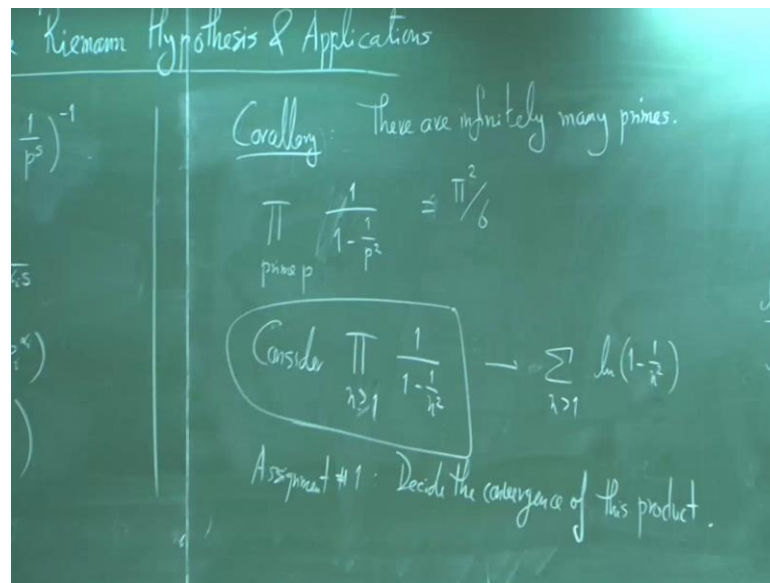 Riemann Hypothesis & Applications
1/p^s)^-1
Corollary: There are infinitely many primes.
∏ prime p 1/(1 - 1/p²) = π²/6
Consider ∏ n≥1 1/(1 - 1/n²) — ∑ n>1 ln(1 - 1/n²)
Assignment #1: Decide the convergence of this product.